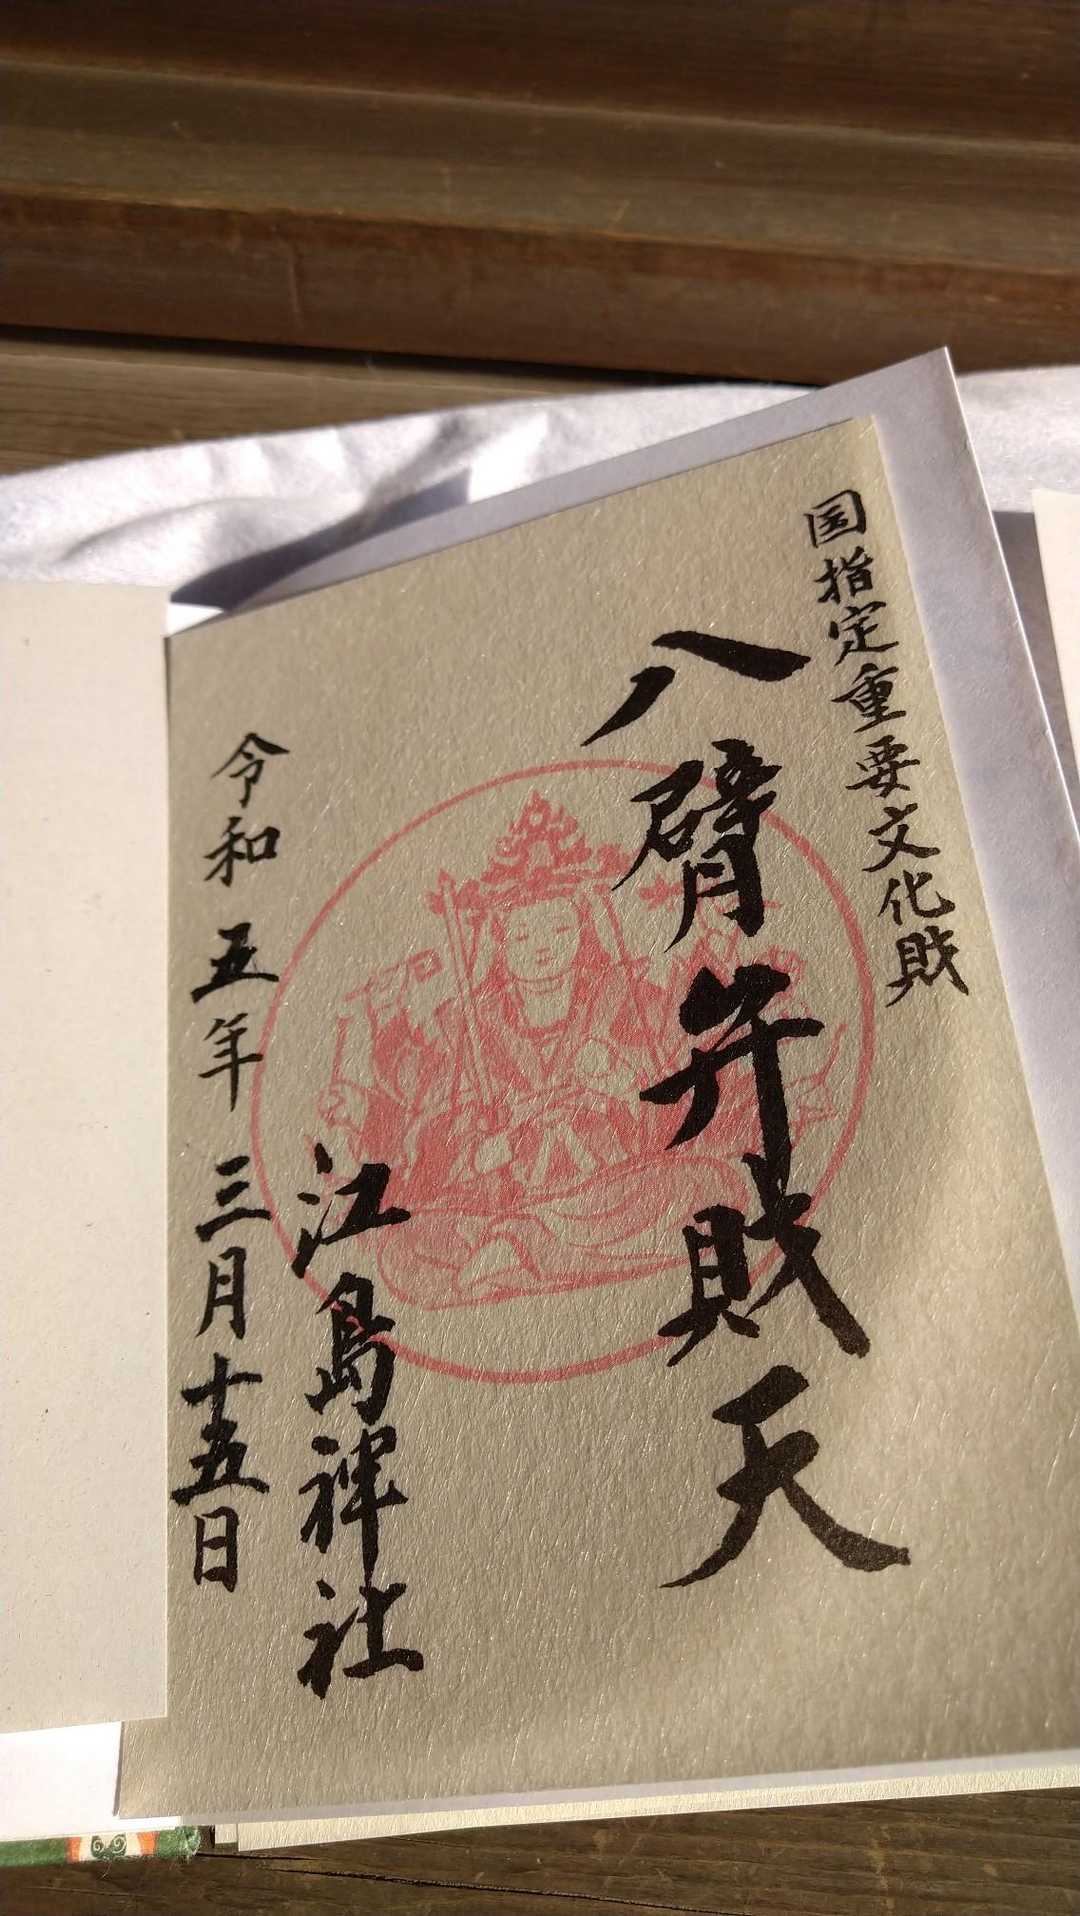 国指定重要文化財
八臂弁財天
江島神社
令和五年三月十五日